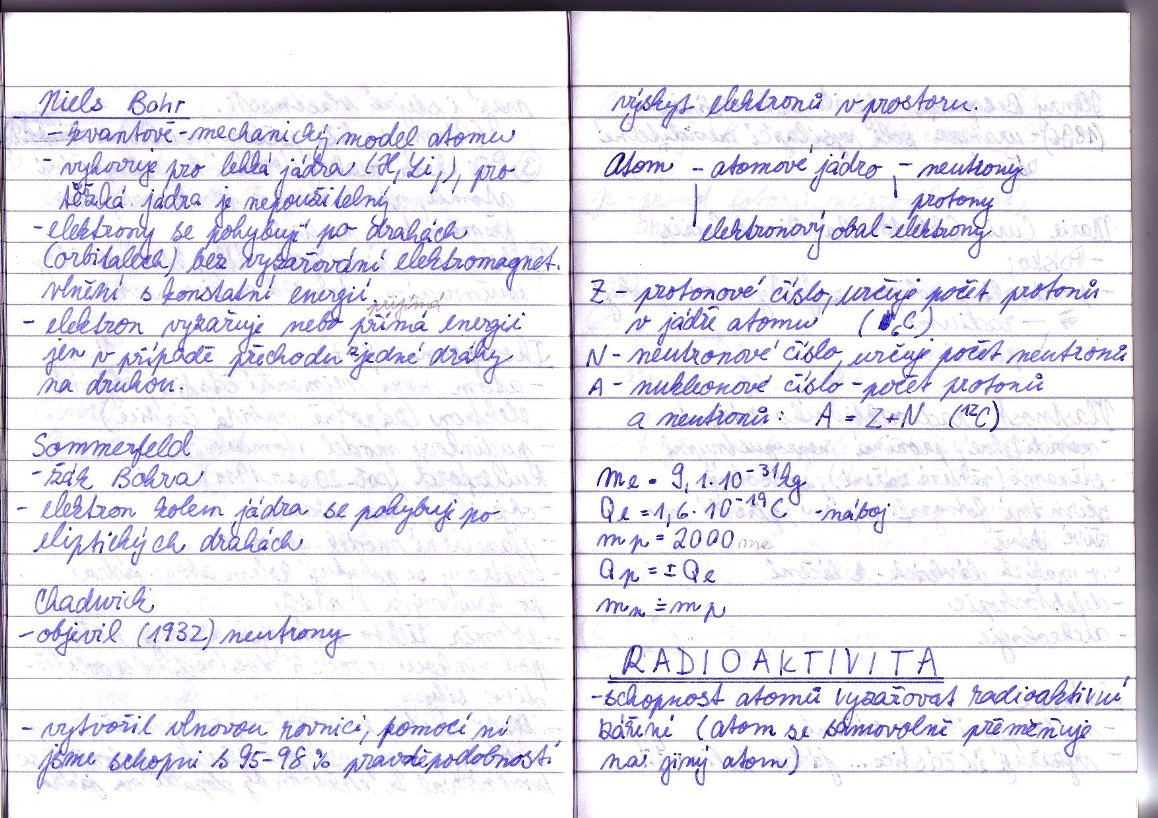 Niels Bohr
- kvantově-mechanický model atomu
- vyhovuje pro lehká jádra (H, Li,), pro
těžká jádra je nepoužitelný
- elektrony se pohybují po drahách
(orbitalech) bez vyzařování elektromagnet.
vlnění s konstatní energií
přijímá
- elektron vyzařuje nebo přímá energii
jen v případě přechodu z jedné dráhy
na druhou.
Sommerfeld
- žák Bohra
- elektron kolem jádra se pohybuje po
eliptických drahách
Chadwick
- objevil (1932) neutrony
- vytvořil vlnovou rovnici, pomocí ní
jsme schopni s 95-98 % pravděpodobností
výskyt elektronů v prostoru.
Atom - atomové jádro - neutrony
protony
elektronový obal - elektrony
Z - protonové číslo, určuje počet protonů
v jádře atomu (₆C)
N - neutronové číslo, určuje počet neutronů
A - nukleonové číslo - počet protonů
a neutronů: A = Z+N (¹²C)
me = 9,1·10⁻³¹kg
Qe = 1,6·10⁻¹⁹C - náboj
mp = 2000 me
Qp = ± Qe
mn ≐ mp
RADIOAKTIVITA
- schopnost atomů vyzařovat radioaktivní
záření (atom se samovolně přeměňuje
na jiný atom)